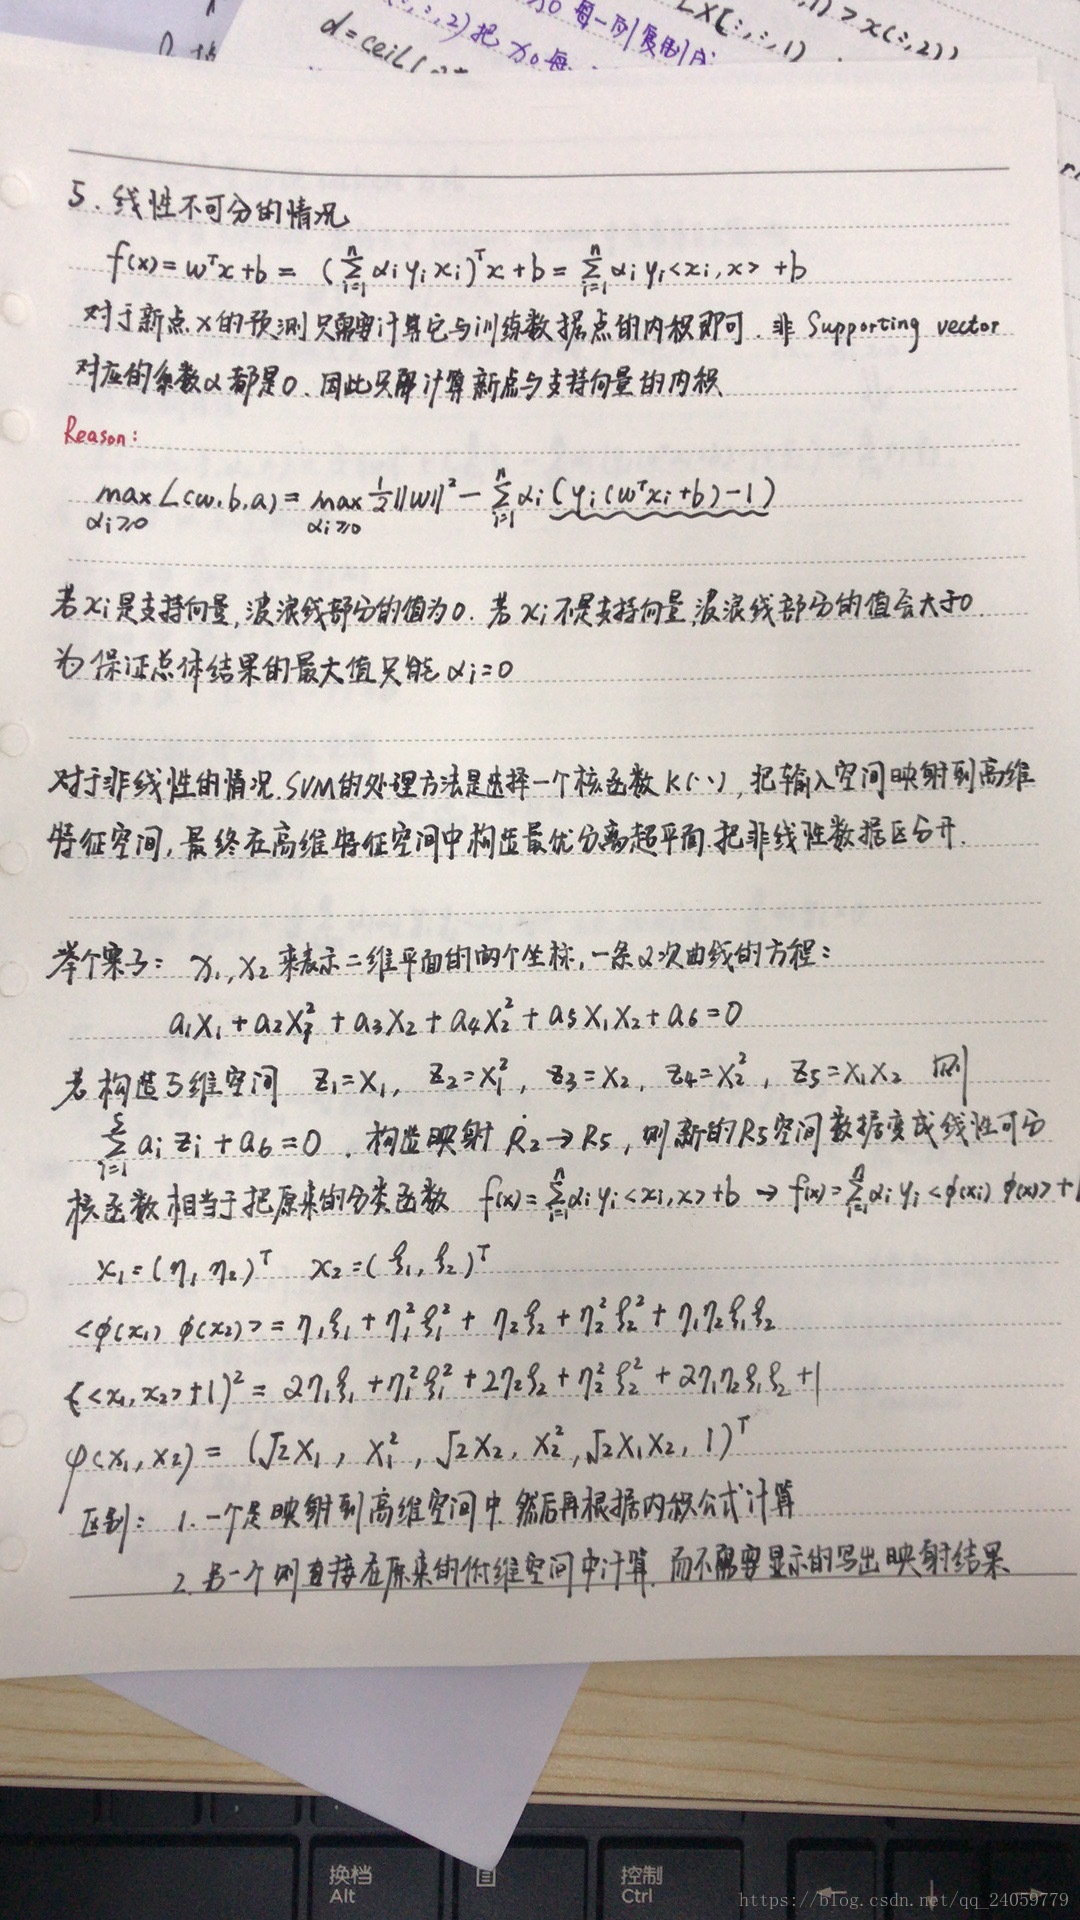 :,:,2)把 x0 每
x0 每一列复制成
d=ceil(
LX(:,:,1)
,1)>x(:,2))
5. 线性不可分的情况
f(x)=wᵀx+b = (∑ᵢ₌₁ⁿ αᵢ yᵢ xᵢ)ᵀx+b = ∑ᵢ₌₁ⁿ αᵢ yᵢ<xᵢ, x> +b
对于新点 x 的预测只需要计算它与训练数据点的内积即可. 非 Supporting vector
对应的系数α都是0. 因此只需计算新点与支持向量的内积
Reason:
max_{αᵢ≥0} L(w,b,a) = max_{αᵢ≥0} ½||w||² - ∑ᵢ₌₁ⁿ αᵢ(yᵢ(wᵀxᵢ+b)-1)
若xᵢ是支持向量,波浪线部分的值为0. 若xᵢ不是支持向量,波浪线部分的值会大于0.
为保证总体结果的最大值只能αᵢ=0
对于非线性的情况. SVM的处理方法是选择一个核函数K(·,·), 把输入空间映射到高维
特征空间, 最终在高维特征空间中构造最优分离超平面.把非线性数据区分开.
举个栗子: x₁,x₂来表示二维平面的两个坐标,一条2次曲线的方程:
a₁x₁+a₂x₁²+a₃x₂+a₄x₂²+a₅x₁x₂+a₆=0
若构造5维空间 z₁=x₁, z₂=x₁², z₃=x₂, z₄=x₂², z₅=x₁x₂ 则
∑ᵢ₌₁⁵ aᵢzᵢ+a₆=0. 构造映射 R₂→R₅, 则新的R₅空间数据变成线性可分
核函数相当于把原来的分类函数 f(x)=∑ᵢ₌₁ⁿ αᵢyᵢ<xᵢ,x>+b → f(x)=∑ᵢ₌₁ⁿ αᵢyᵢ<φ(xᵢ) φ(x)>+
x₁=(η₁,η₂)ᵀ x₂=(ξ₁,ξ₂)ᵀ
<φ(x₁) φ(x₂)>=η₁ξ₁+η₁²ξ₁²+η₂ξ₂+η₂²ξ₂²+η₁η₂ξ₁ξ₂
(<x₁,x₂>+1)²=2η₁ξ₁+η₁²ξ₁²+2η₂ξ₂+η₂²ξ₂²+2η₁η₂ξ₁ξ₂+1
φ(x₁,x₂)=(√2x₁, x₁², √2x₂, x₂², √2x₁x₂, 1)ᵀ
区别: 1. 一个是映射到高维空间中,然后再根据内积公式计算
2. 另一个则直接在原来的低维空间中计算,而不需要显示的写出映射结果
换档
Alt
控制
Ctrl
https://blog.csdn.net/qq_24059779